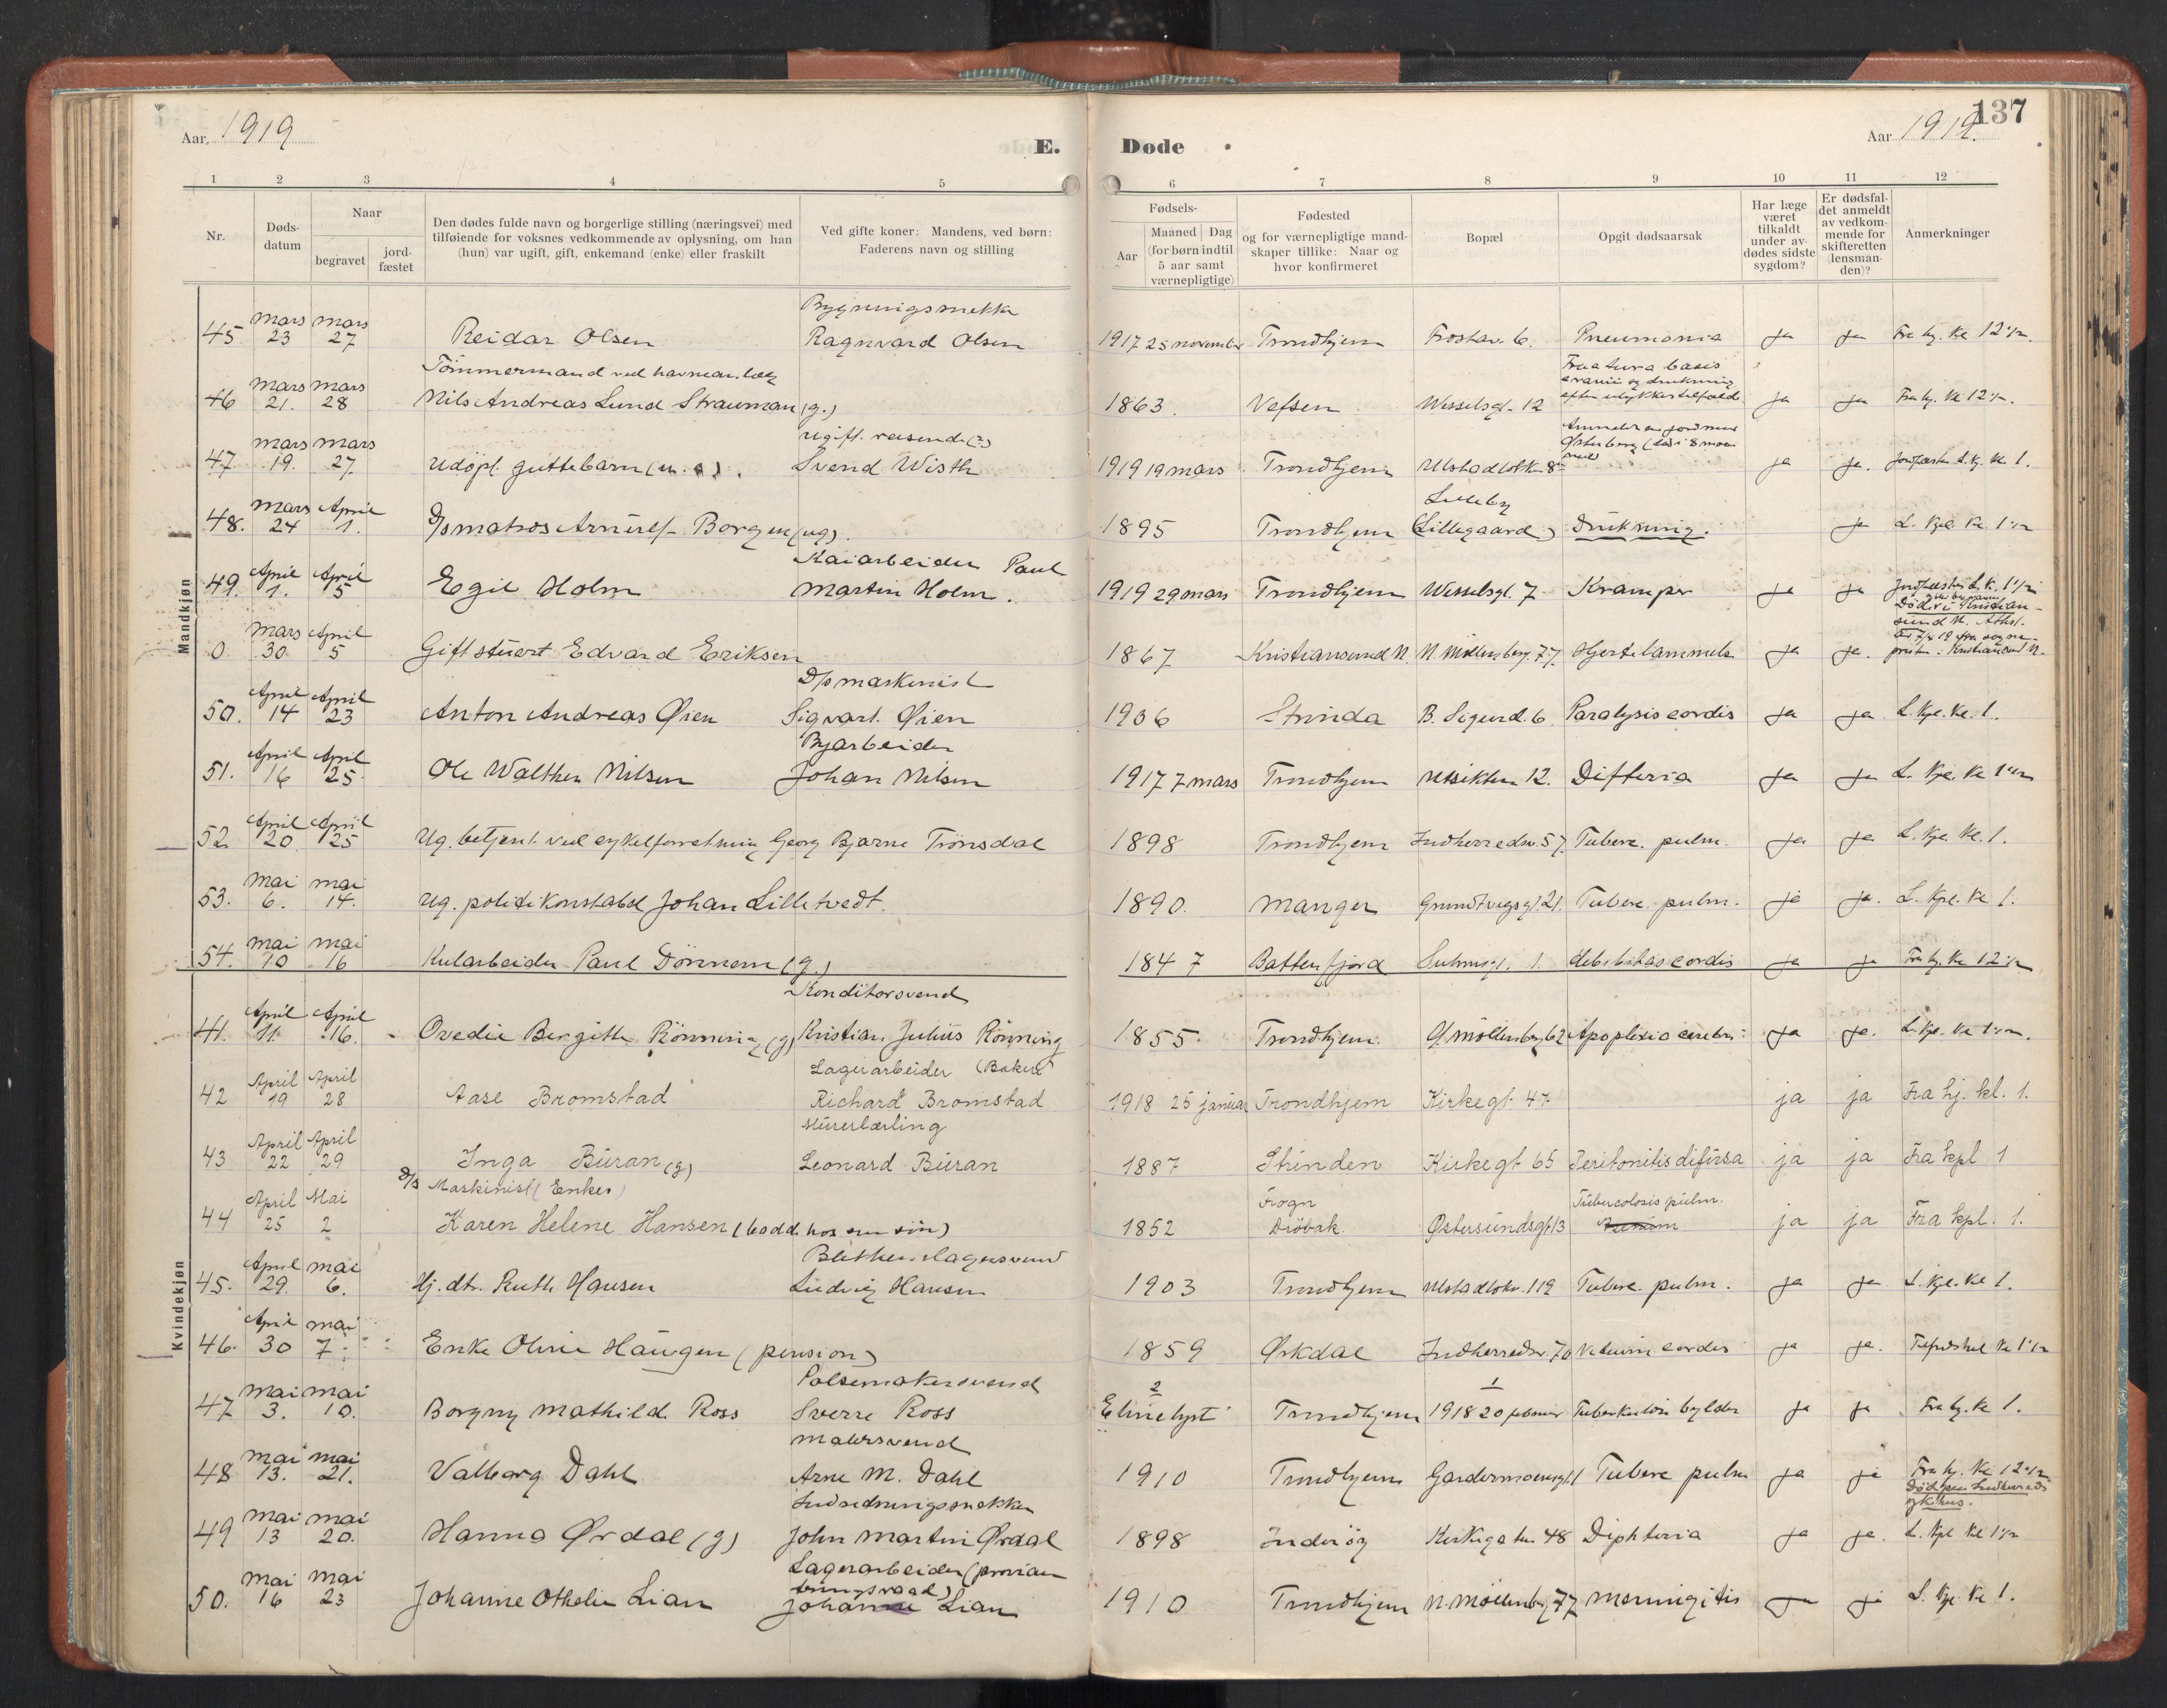 Aar 1919
E. Døde
Aar 1919.
137
1 2 3 4 5 6 7 8 9 10 11 12
Nr.
Døds-
datum
Naar
begravet
jord-
fæstet
Den dødes fulde navn og borgerlige stilling (næringsvei) med
tilføiende for voksnes vedkommende av oplysning, om han
(hun) var ugift, gift, enkemand (enke) eller fraskilt
Ved gifte koner: Mandens, ved børn:
Faderens navn og stilling
Fødsels-
Aar
Maaned Dag
(for børn indtil
5 aar samt
værnepligtige)
Fødested
og for værnepligtige mand-
skaper tillike: Naar og
hvor konfirmeret
Bopæl
Opgit dødsaarsak
Har læge
været
tilkaldt
under av-
dødes sidste
sygdom?
Er dødsfal-
det anmeldt
av vedkom-
mende for
skifteretten
(lensman-
den)?
Anmerkninger
Mandkjøn
Bygningssnekker
45 mars 23 mars 27 Reidar Olsen Ragnvard Olsen 1917 25 november Trondhjem Frostav. 6. Pneumonia ja ja Fra hj. kl 12 1/2.
Tömmermand ved havnean.
46 mars 21. mars 28 Nils Andreas Lund Strauman (g.) 1863. Vefsen Wesselsgt. 12 Fractura basis cranii og drukning efter ulykkestilfælde ja ja Fra hj. kl 12 1/2.
ugift. reisende (?)
47 mars 19. mars 27. udöpt guttebarn (u. e). Svend Wisth 1919 19 mars Trondhjem Ulstadløkk. 8 ja ja. Jordfæstes L. kj. kl. 1.
Lilleby
48. mars 24 April 1. D/s matros Arnulf Borgen (ug). 1895 Trondhjem (Lillegaard) Drukning. ja L. kpl kl. 1 1/2
Kaiarbeider Paul
49. April 1. April 5 Egil Holm Martin Holm. 1919 29 mars Trondhjem Wesselsgt. 7 Kramper ja ja Jordfæstes L. k. 1 1/2
0 mars 30 April 5 Gift stuert Edvard Eriksen 1867 Kristiansund N. N. Møllenberg. 77. Hjertelammelse ja ja. Død i Kristian-
sund N. Attest.
fra sogne-
presten i Kristiansund N.
D/s maskinist
50. April 14 April 23 Anton Andreas Øien Sigvart Øien 1906 Strinda B. Sigurd. 6 Paralysis cordis ja ja L. kpl. kl. 1.
Byarbeider
51. April 16 April 25 Ole Walther Nilsen Johan Nilsen 1917 7 mars Trondhjem Utsikten 12. Difteria ja ja L. kpl. kl 1 1/2
52. April 20 April 25 Ug. betjent ved cykelforretning Georg Bjarne Trönsdal 1898 Trondhjem Indherredsv. 57 Tuberc. pulm. ja ja L. kpl. kl. 1.
53. mai 6. mai 14. Ug. politikonstabel Johan Lilletvedt. 1890. Manger Grundtvigsgt. 21. Tuberc. pulm. ja ja. L. kpl. kl. 1.
54. mai 10 mai 16 Kularbeider Paul Dönnem (g.) 1847 Battenfjord Suhmsgt. 1. debilitas cordis ja ja Fra hj. kl 12 1/2
Kvindekjøn
Konditorsvend
41. April 11. April 16. Ovedie Bergitte Rönning (g) Kristian Julius Rönning 1855. Trondhjem. Ø. Möllenberg 62 Apoplexia cerebri ja ja. L. kpl. kl 1 1/2.
Lagerarbeider (Baker)
42 April 19 April 28 Aase Bromstad Richard Bromstad 1918 25 januar Trondhjem Kirkegt 47 ja ja Fra hj. kl. 1.
Murerlærling
43 April 22 April 29 Inga Buran (g) Leonard Buran 1887 Strinden Kirkegt 65 Peritonitis difusa ja ja Fra kpl 1
D/s Maskinist (Enke)
44 April 25 Mai 2 Karen Helene Hansen (bodde hos sin sön) 1852 Frogn Dröbak. Østersundsgt 13 Tuberculosis pulm. ja ja Fra kpl. 1.
Blikkenslagersvend
45. April 29. mai 6. Hj. dtr. Ruth Hansen Ludvig Hansen 1903 Trondhjem Ulstadløkv. 119 Tuberc. pulm. ja ja L. kpl. kl 1.
46. April 30 mai 7. Enke Oline Haugen (pension) 1859 Ørkdal Indherredsv. 70 Vitium cordis ja ja. Tilfredshet kl 1 1/2
Pölsemakersvend
47 mai 3. mai 10. Borgny Mathilde Ross Sverre Ross 2 Elinelyst Trondhjem 1 1918 20 februar Tuberkulöse bylder ja ja Fra hj. kl 1.
Malersvend
48 mai 13. mai 21. Valborg Dahl Arne M. Dahl 1910 Trondhjem Gardermoensgt 1 Tuberc pulm ja ja Fra hj. kl 12 1/2
Indredningssnekker
49 mai 13 mai 20. Hanna Ørdal (g) John Martin Ørdal 1898 Inderöy Kirkegaten 48 Diphteria ja ja. Död paa Indherreds
sykehus.
L. kpl kl 1 1/2
Lagerarbeider (provian
teringsraad)
50. mai 16 mai 23 Johanne Othelie Lian Johan Lian 1910 Trondhjem N. Möllenbg. 77 Meningitis ja ja L. kpl. kl 1.